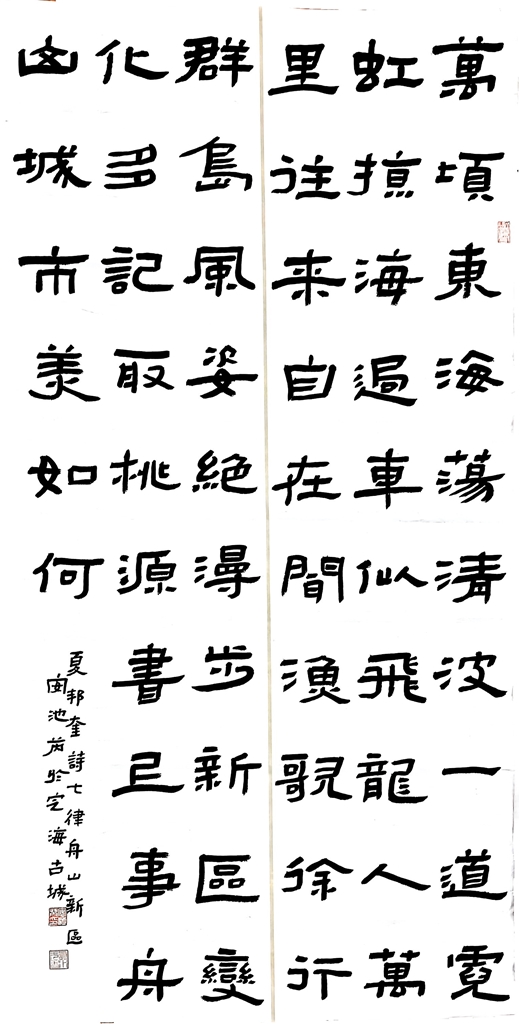 萬頃東海蕩清波一道霓
虹掠海過車似飛龍人萬
里往来自在間漁歌徐行
群島風姿絕漫步新區變
化多記取桃源書巳事舟
山城市美如何
夏邦奎詩七律舟山新區
池於定海古城